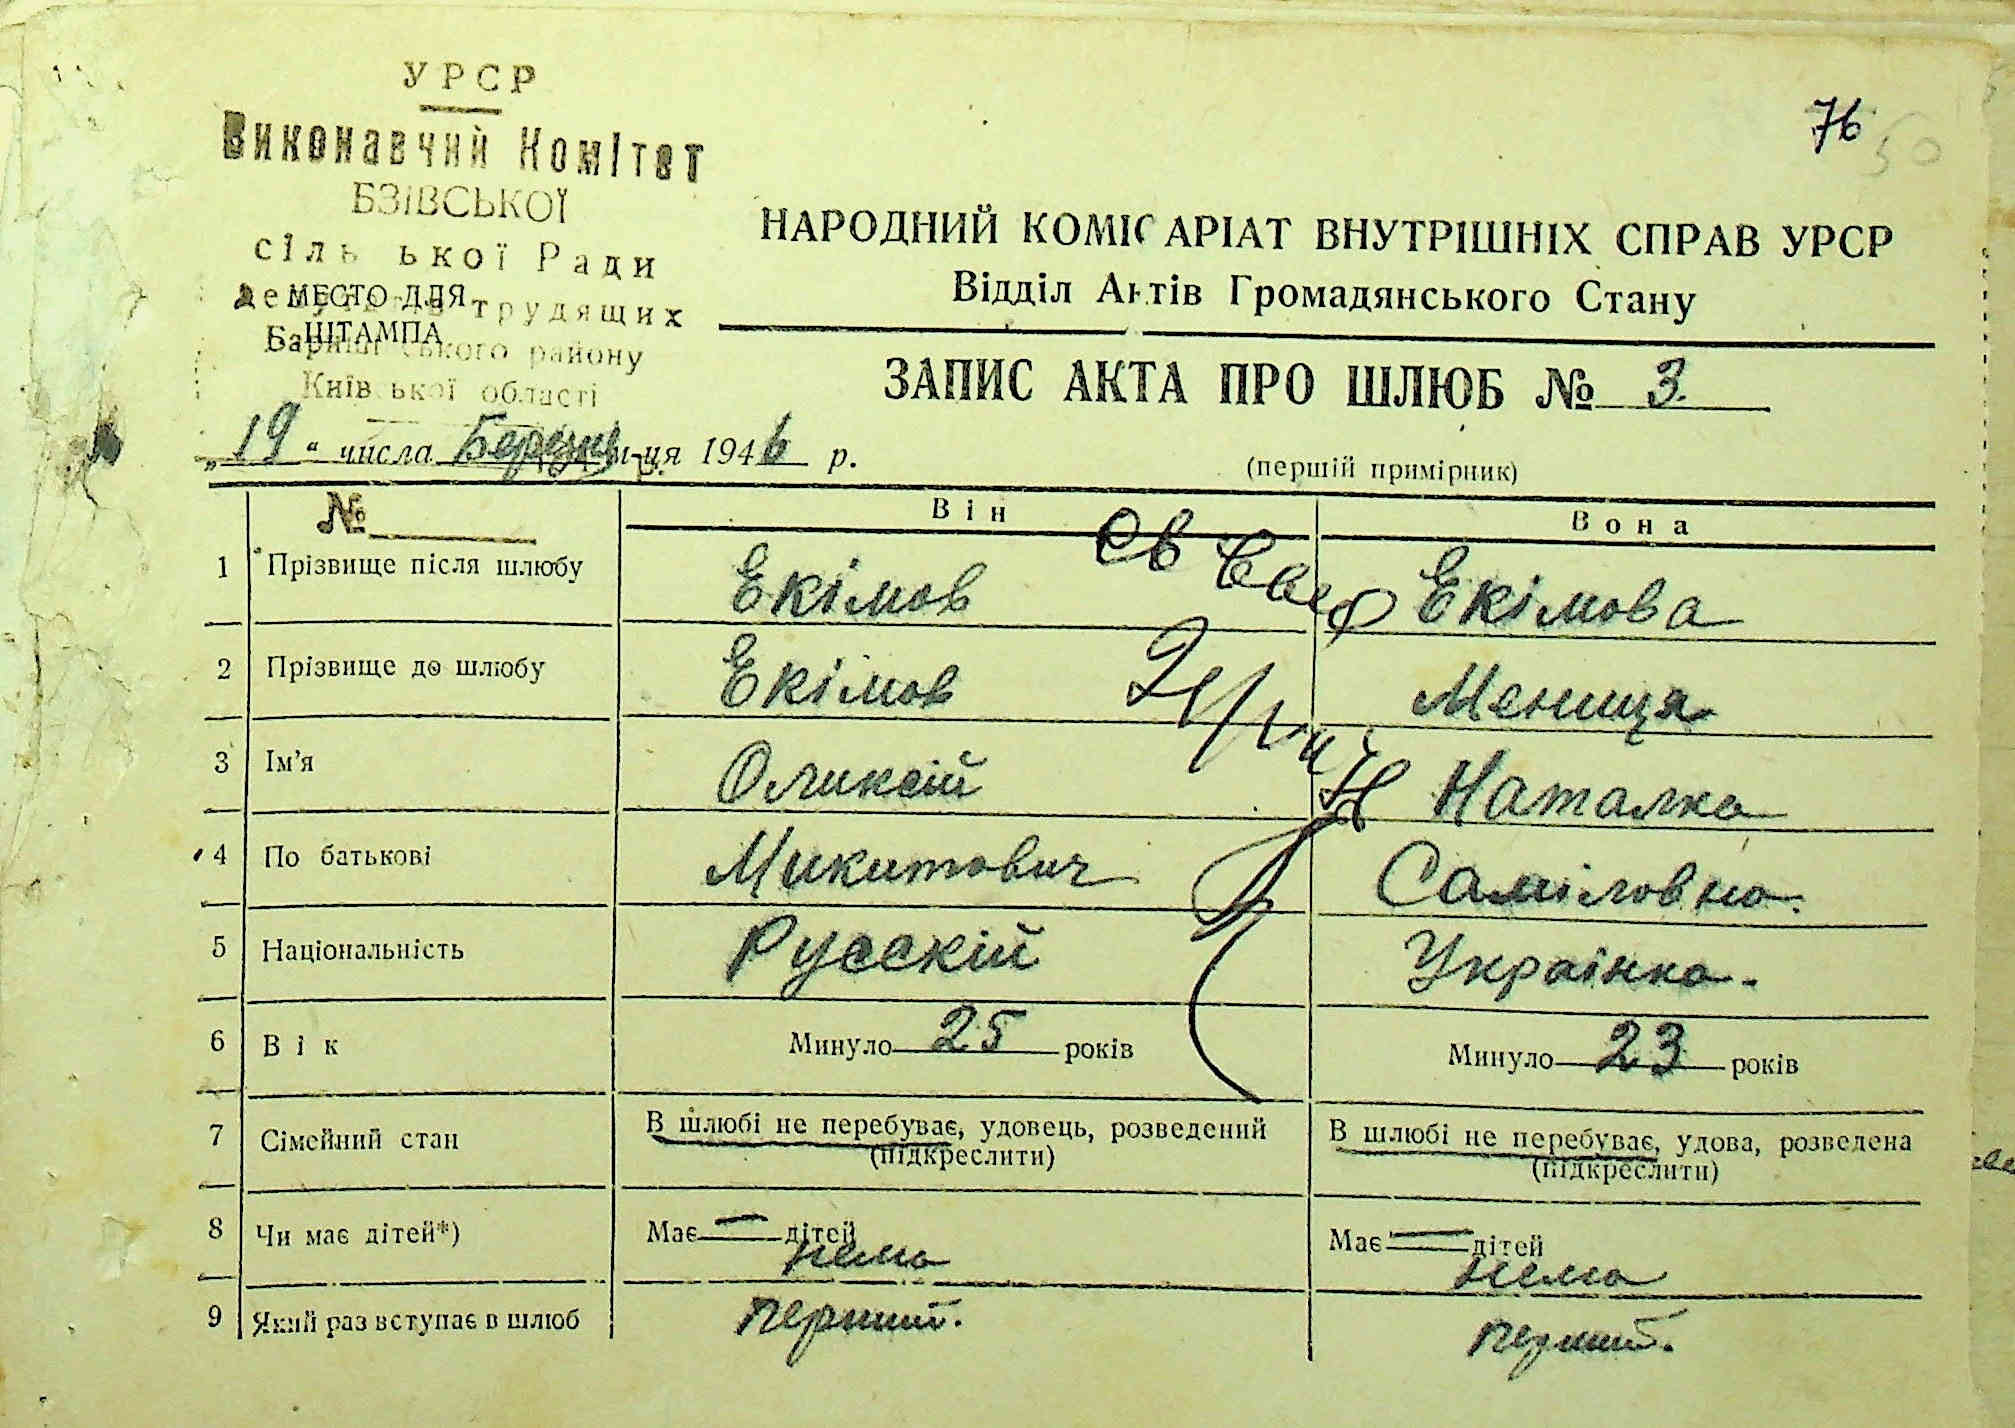 УРСР
76 50
Виконавчий Комітет
БЗІВСЬКОЇ
сіль ької Ради
НАРОДНИЙ КОМІСАРІАТ ВНУТРІШНІХ СПРАВ УРСР
Відділ Актів Громадянського Стану
МЕСТО ДЛЯ
трудящих
ШТАМПА
ського району
Київ ької області
ЗАПИС АКТА ПРО ШЛЮБ № 3.
„19“ числа Березня м-ця 1946 р.
(першій примірник)
№
Він
Вона
1 Прізвище після шлюбу Екімов Екімова
2 Прізвище до шлюбу Екімов Мениця
3 Ім'я Оликсій Наталка
4 По батькові Микитович Саміловна.
5 Національність Русскій Украінка.
6 Вік Минуло 25 років Минуло 23 років
7 Сімейний стан В шлюбі не перебуває, удовець, розведений В шлюбі не перебуває, удова, розведена
(підкреслити) (підкреслити)
8 Чи має дітей*) Має — дітей Має — дітей
нема нема
9 Який раз вступає в шлюб перший. перший.